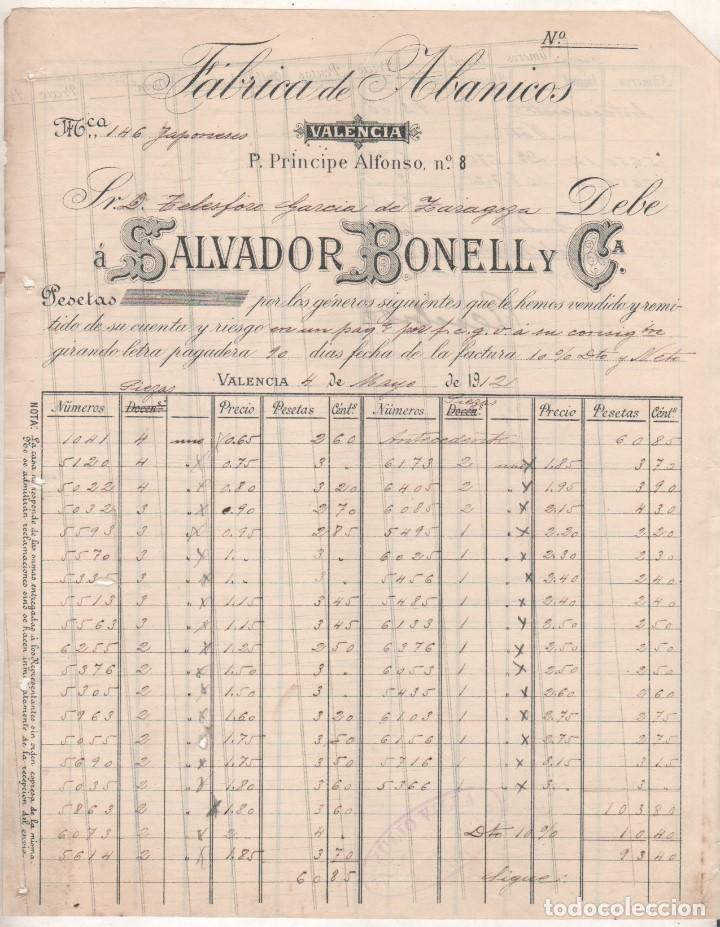 Nº
Fábrica de Abanicos
Mca 146 Japoneses
VALENCIA
P. Principe Alfonso, n.º 8
Sr. D. Telesforo Garcia de Zaragoza Debe
á SALVADOR BONELL Y Cª.
Pesetas por los géneros siguientes que le hemos vendido y remi-
tido de su cuenta y riesgo en un paqte por f.c.g.v. á su consigon
girando letra pagadera 90 dias fecha de la factura 10 % Dto y Neto
VALENCIA 4 de Mayo de 1912
Piezas Piezas
Números Docens. Precio Pesetas Cénts. Números Docens. Precio Pesetas Cénts.
1041 4 uno x 0.65 2 60 Antecedente 60 85
5120 4 " x 0.75 3 . 6173 2 uno x 1.85 3 70
5022 4 " x 0.80 3 20 6405 2 " x 1.95 3 90
5032 3 " x 0.90 2 70 6085 2 " x 2.15 4 30
5593 3 " x 0.95 2 85 5495 1 " x 2.20 2 20
5570 3 " x 1. 3 . 6025 1 " x 2.30 2 30
5335 3 " x 1. 3 . 5456 1 " x 2.40 2 40
5513 3 " x 1.15 3 45 5485 1 " x 2.40 2 40
5563 3 " x 1.15 3 45 6133 1 " x 2.50 2 50
6255 2 " x 1.25 2 50 6376 1 " x 2.50 2 50
5376 2 " x 1.50 3 . 6053 1 " x 2.50 2 50
5305 2 " x 1.50 3 . 5435 1 " x 2.60 2 60
5963 2 " x 1.60 3 20 6103 1 " x 2.75 2 75
5055 2 " x 1.75 3 50 6156 1 " x 2.75 2 75
5690 2 " x 1.75 3 50 5716 1 " x 3.15 3 15
5035 2 " x 1.80 3 60 5366 1 " x 3. 3 .
5863 2 " x 1.80 3 60 103 80
6073 2 " x 2. 4 . Dto 10 % 10 40
5614 2 " x 1.85 3 70 93 40
60 85 Sigue:
NOTA: La casa no responde de las sumas entregadas á los Representantes sin orden expresa de la misma.
No se admitirán reclamaciones sino se hacen inmediatamente de la recepcion del envio.
todocoleccion.net